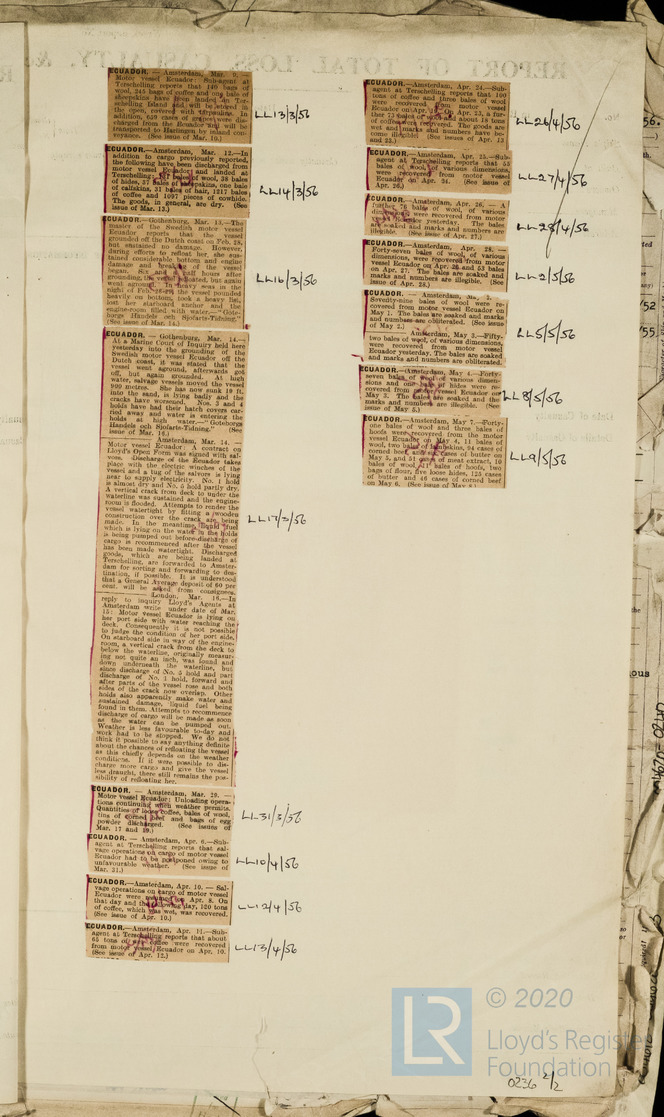 REPORT OF TOTAL LOSS, CASUALTY, &c
ECUADOR. — Amsterdam, Mar. 9. —
Motor vessel Ecuador: Sub-agent at
Terschelling reports that 149 bags of
wool, 245 bags of coffee and one bale of
sheepskins have been landed on Ter-
schelling Island and will be stored in
the open, covered with tarpaulins. In
addition, 50 cases of were dis-
charged from the Ecuador and will be
transported to Harlingen by inland con-
veyance. (See issue of Mar. 10.)
LL13/3/56
ECUADOR.—Amsterdam, Mar. 12.—In
addition to cargo previously reported,
the following have been discharged from
motor vessel Ecuador and landed at
Terschelling: bales of wool, 38 bales
of hides, 57 bales of sheepskins, one bale
of calfskins, 31 bales of hair, 1217 bales
of coffee and 1097 pieces of cowhide.
The goods, in general, are dry. (See
issue of Mar. 13.)
LL14/3/56
ECUADOR.—Gothenburg, Mar. 13.—The
master of the Swedish motor vessel
Ecuador reports that the vessel
grounded off the Dutch coast on Feb. 28,
but sustained no damage. However,
during efforts to refloat her, she sus-
tained considerable bottom and engine
damage and of the vessel
began. Six and a half hours after
grounding, the vessel floated but again
went aground. In heavy seas in the
night of Feb. the vessel struck
heavily on bottom, took a heavy list,
lost her starboard anchor and the
engine-room filled with water.—"Gote-
borgs Handels och Sjofarts-Tidning."
(See issue of Mar. 14.)
LL16/3/56
ECUADOR. — Gothenburg, Mar. 14.—
At a Marine Court of Inquiry held here
yesterday into the grounding of the
Swedish motor vessel Ecuador off the
Dutch coast, it was stated that the
vessel went aground, afterwards got
off, but again grounded. At high
water, salvage vessels moved the vessel
900 metres. She has now sunk 10 ft.
into the sand, is lying badly and the
cracks have increased. Nos. 3 and 4
holds have had their hatch covers car-
ried away and water is entering the
holds at high water.—"Goteborgs
Handels och Sjofarts-Tidning." (See
issue of Mar. 16.)
Amsterdam, Mar. 14. —
Motor vessel Ecuador: A contract on
Lloyd's Open Form was signed with sal-
vors. Discharge of the Ecuador takes
place with the electric winches of the
vessel and a tug of the salvors is lying
near to supply electricity. No. 1 hold
is almost dry and No. 5 hold partly dry.
A vertical crack from deck to under the
waterline was sustained and the engine-
room is flooded. Attempts to render the
vessel watertight by fitting a wooden
construction over the crack are being
made. In the meantime, liquid fuel
which is lying on the water in the holds
is being pumped out before discharge of
cargo is recommenced after the vessel
has been made watertight. Discharged
goods, which are being landed at
Terschelling, are forwarded to Amster-
dam for sorting and forwarding to des-
tination, if possible. It is understood
that a General Average deposit of 60 per
cent. will be asked from consignees.
London, Mar. 16.—In
reply to inquiry Lloyd's Agents at
Amsterdam write under date of Mar.
15: Motor vessel Ecuador is lying on
her port side with water reaching the
deck. Consequently it is not possible
to judge the condition of her port side.
On starboard side in way of the engine-
room, a vertical crack from the deck to
below the waterline, originally measur-
ing not quite an inch, was found and
down underneath the waterline, but
since discharge of No. 5 hold and part
discharge of No. 1 hold, forward and
after parts of the vessel rose and both
sides of the crack now overlap. Other
holds also apparently make water and
sustained damage, liquid fuel being
found in them. Attempts to recommence
discharge of cargo will be made as soon
as the water can be pumped out.
Weather is less favourable to-day and
work had to be stopped. We do not
think it possible to say anything definite
about the chances of refloating the vessel
as this chiefly depends on the weather
conditions. If it were possible to dis-
charge more cargo and give the vessel
less draught, there still remains the pos-
sibility of refloating her.
LL17/3/56
ECUADOR. — Amsterdam, Mar. 29. —
Motor vessel Ecuador: Unloading opera-
tions continuing when weather permits.
Quantities of loose coffee, bales of wool,
tins of corned beef and bags of egg
powder discharged. (See issues of
Mar. 17 and 29.)
LL31/3/56
ECUADOR. — Amsterdam, Apr. 6.—Sub-
agent at Terschelling reports that sal-
vage operations on cargo of motor vessel
Ecuador had to be postponed owing to
unfavourable weather. (See issue of
Mar. 31.)
LL10/4/56
ECUADOR.—Amsterdam, Apr. 10. — Sal-
vage operations on cargo of motor vessel
Ecuador were on Apr. 8. On
that day and the following day, 120 tons
of coffee, which was wet, was recovered.
(See issue of Apr. 10.)
LL12/4/56
ECUADOR.—Amsterdam, Apr. 11.—Sub-
agent at Terschelling reports that about
65 tons of coffee were recovered
from motor vessel Ecuador on Apr. 10.
(See issue of Apr. 12.)
LL13/4/56
ECUADOR.—Amsterdam, Apr. 24.—Sub-
agent at Terschelling reports that 100
tons of coffee and three bales of wool
were recovered from motor vessel
Ecuador on Apr. On Apr. 23, a fur-
ther 75 bales of wool and about 18 tons
of coffee were recovered. The goods are
wet and marks and numbers have be-
come illegible. (See issues of Apr. 13
and 23.)
LL26/4/56
ECUADOR.—Amsterdam, Apr. 25.—Sub-
agent at Terschelling reports that 55
bales of wool, of various dimensions,
were recovered from motor vessel
Ecuador on Apr. 24. (See issue of
Apr. 26.)
LL27/4/56
ECUADOR.—Amsterdam, Apr. 26. — A
further 76 bales of wool, of various
dimensions, were recovered from motor
vessel yesterday. The bales
are soaked and marks and numbers are
illegible. (See issue of Apr. 27.)
LL28/4/56
ECUADOR. — Amsterdam, Apr. 28. —
Forty-seven bales of wool, of various
dimensions, were recovered from motor
vessel Ecuador on Apr. 26 and 53 bales
on Apr. 27. The bales are soaked and
marks and numbers are illegible. (See
issue of Apr. 28.)
LL2/5/56
ECUADOR. — Amsterdam, May 2.—
Seventy-nine bales of wool were re-
covered from motor vessel Ecuador on
May 1. The bales are soaked and marks
and numbers are obliterated. (See issue
of May 2.)
Amsterdam, May 3.—Fifty-
two bales of wool, of various dimensions,
were recovered from motor vessel
Ecuador yesterday. The bales are soaked
and marks and numbers are obliterated.
LL5/5/56
ECUADOR.—Amsterdam, May 4.—Forty-
seven bales of wool of various dimen-
sions and one of hides were re-
covered from motor vessel Ecuador on
May 3. The bales are soaked and the
marks and numbers are illegible. (See
issue of May 5.)
LL8/5/56
ECUADOR. — Amsterdam, May 7.—Forty-
one bales of wool and three bales of
hoofs were recovered from the motor
vessel Ecuador on May 4, 11 bales of
wool, two bales of lambskins, 84 cases of
corned beef and cases of butter on
May 5, and of meat extract, 10
bales of wool, 11 bales of hoofs, two
bags of flour, five loose hides, 125 cases
of butter and 46 cases of corned beef
on May 6. (See issue of May 8.)
LL9/5/56
56.
/52
/55.
the
ous
LR
© 2020
Lloyd's Registe
Foundation
0236 2/2